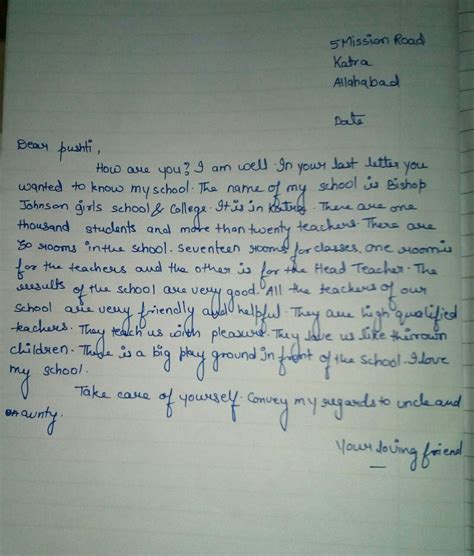 5 Mission Road
Katra
Allahabad
Date
Dear pushti,
How are you? I am well. In your last letter you
wanted to know my school. The name of my school is Bishop
Johnson girls school & College. It is in Katra. There are one
thousand students and more than twenty teachers. There are
30 rooms in the school. Seventeen rooms for classes. One room is
for the teachers and the other is for the Head Teacher. The
results of the school are very good. All the teachers of our
school are very friendly and helpful. They are high qualified
teachers. They teach us with pleasure. They love us like their own
children. There is a big play ground in front of the school. I love
my school.
Take care of yourself. Convey my regards to uncle and
aunty.
Your loving friend